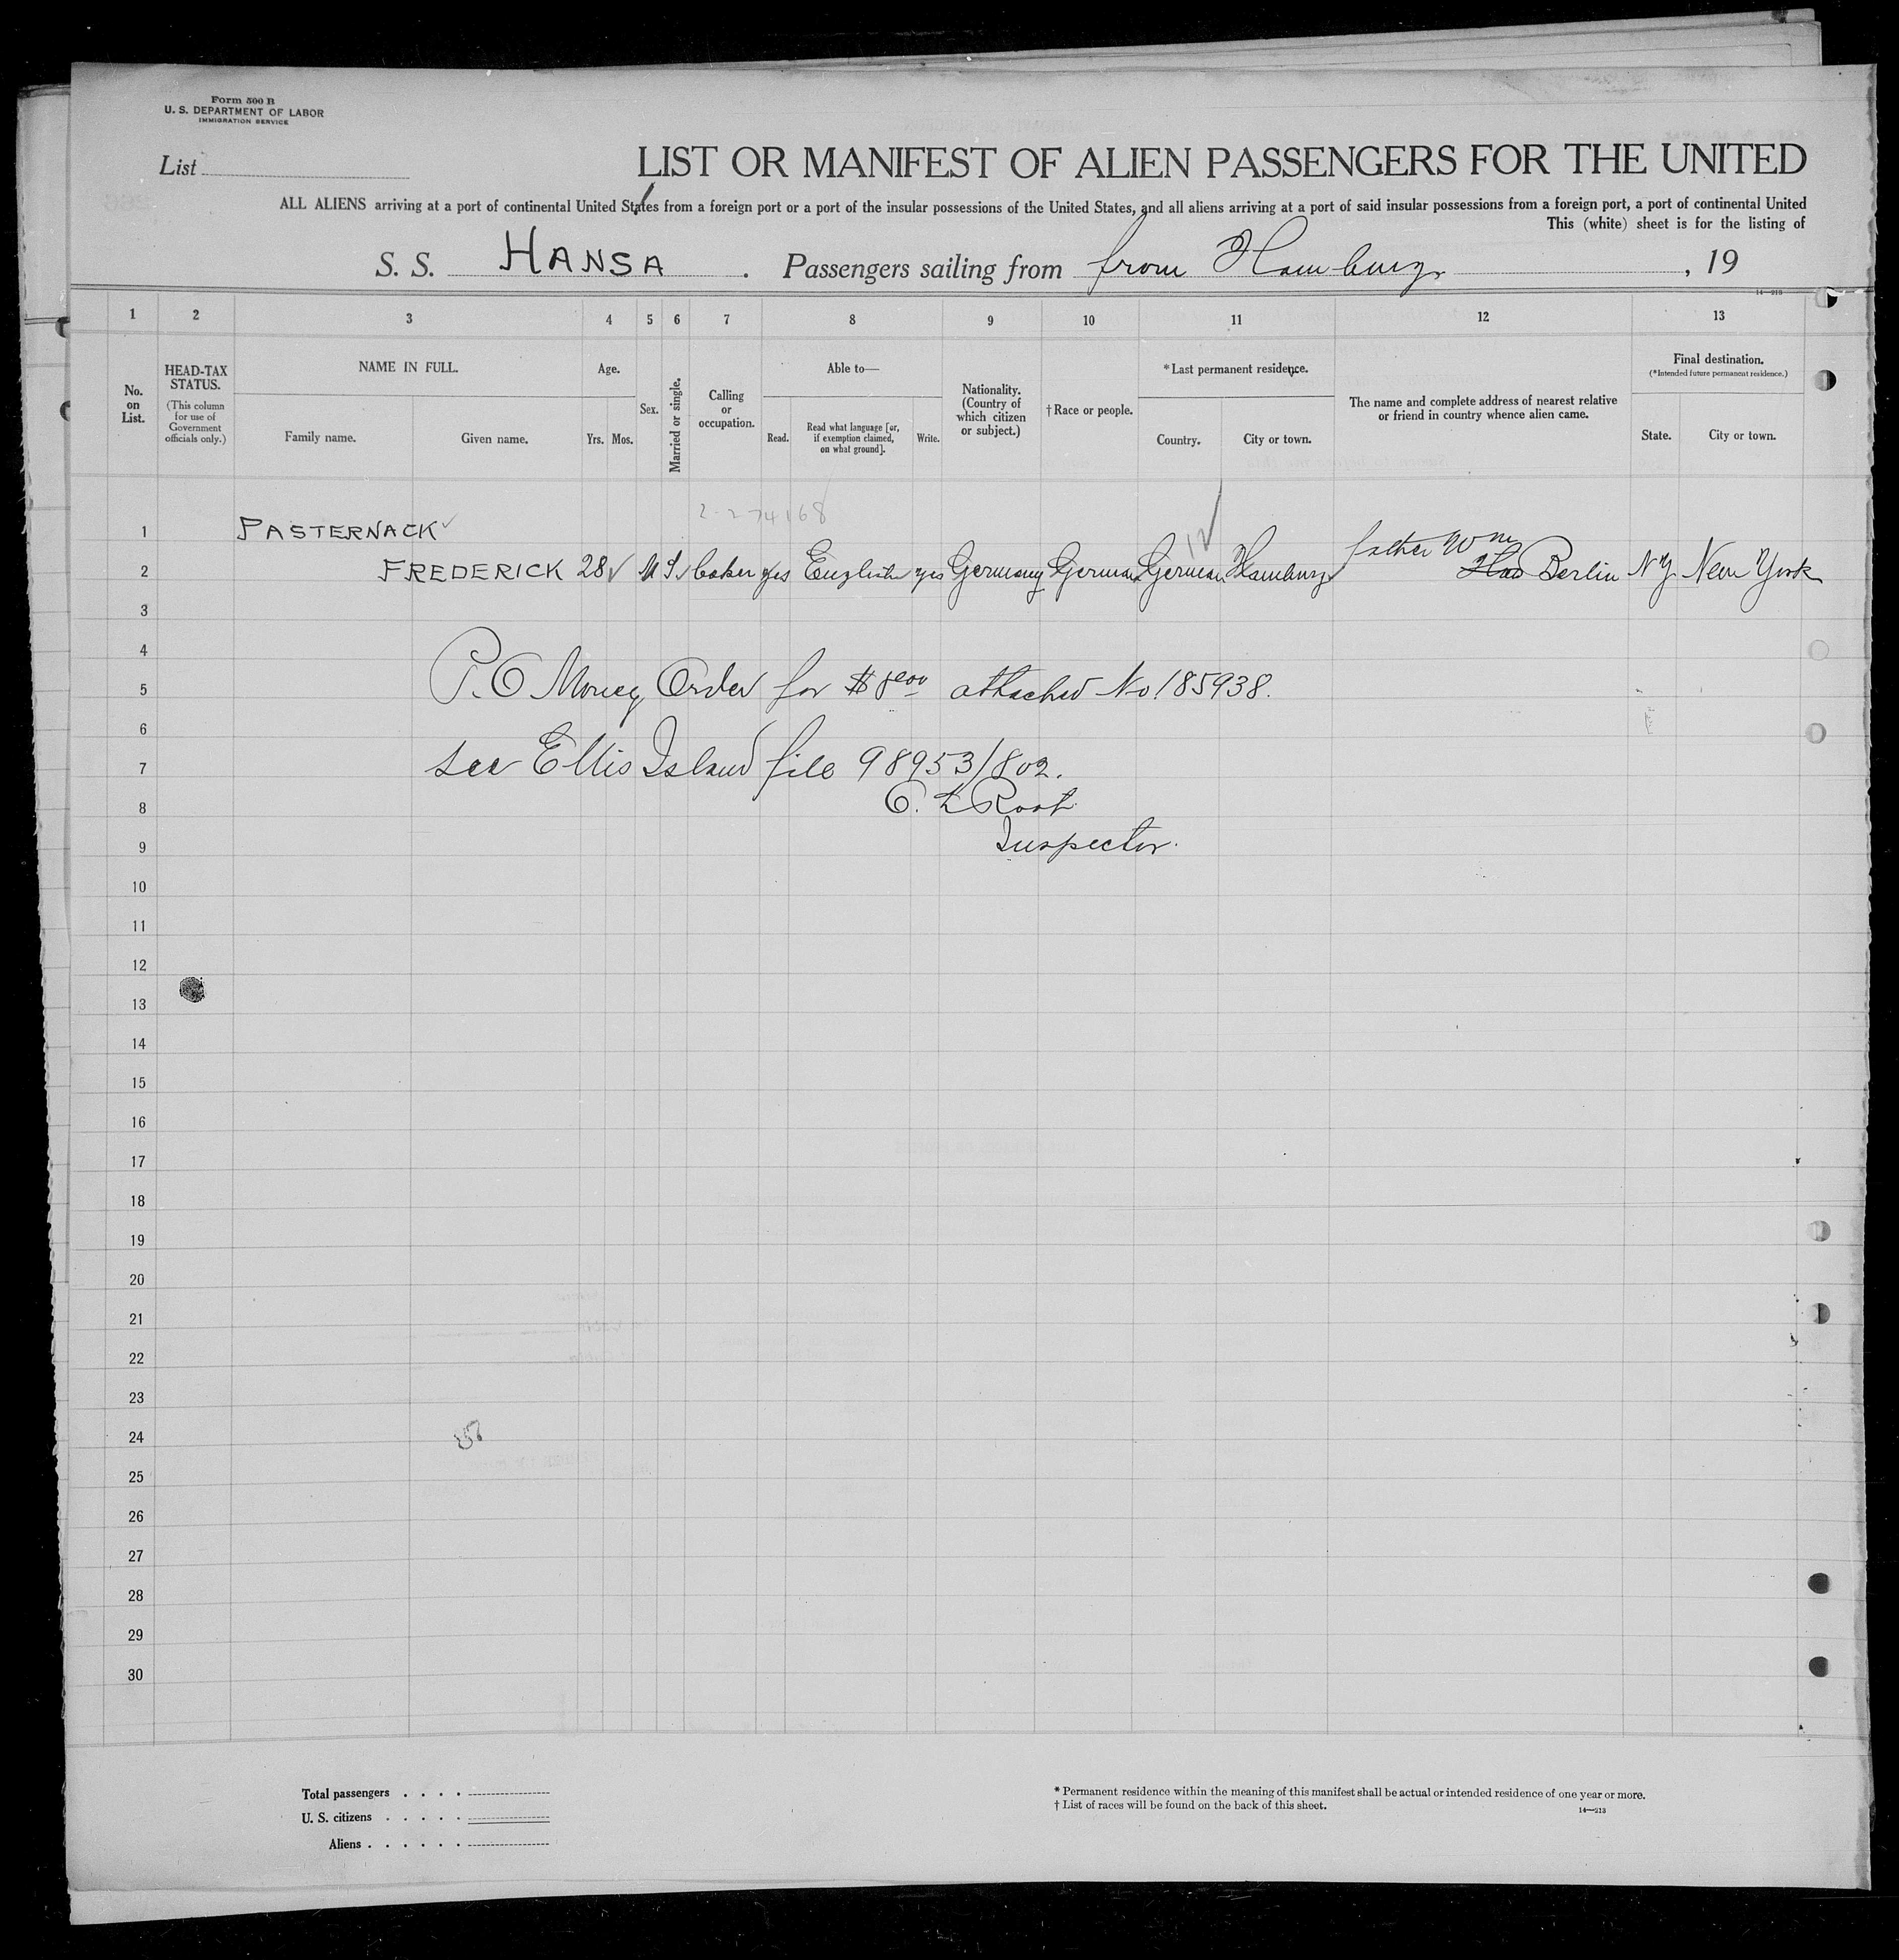 Form 500 B
U. S. DEPARTMENT OF LABOR
IMMIGRATION SERVICE
List
LIST OR MANIFEST OF ALIEN PASSENGERS FOR THE UNITED
ALL ALIENS arriving at a port of continental United States from a foreign port or a port of the insular possessions of the United States, and all aliens arriving at a port of said insular possessions from a foreign port, a port of continental United
This (white) sheet is for the listing of
S. S. HANSA . Passengers sailing from from Hamburg , 19
14—213
1 2 3 4 5 6 7 8 9 10 11 12 13
No. on List.
HEAD-TAX STATUS.
(This column for use of Government officials only.)
NAME IN FULL.
Family name. Given name.
Age.
Yrs. Mos.
Sex.
Married or single.
Calling or occupation.
Able to—
Read. Read what language [or, if exemption claimed, on what ground]. Write.
Nationality. (Country of which citizen or subject.)
† Race or people.
* Last permanent residence.
Country. City or town.
The name and complete address of nearest relative or friend in country whence alien came.
Final destination.
(*Intended future permanent residence.)
State. City or town.
2-274168
12
1 PASTERNACK
father Wm
2 FREDERICK 28 M S baker yes English yes Germany German German Hamburg Berlin NY New York
3
4
5 P.O Money Order for $8.00 attached No 185938.
6
7 see Ellis Island file 98953/802.
8 E. L Root
9 Inspector.
10
11
12
13
14
15
16
17
18
19
20
21
22
23
24
25
26
27
28
29
30
Total passengers . . . .
U. S. citizens . . . . .
Aliens . . . . . .
* Permanent residence within the meaning of this manifest shall be actual or intended residence of one year or more.
† List of races will be found on the back of this sheet.
14—213